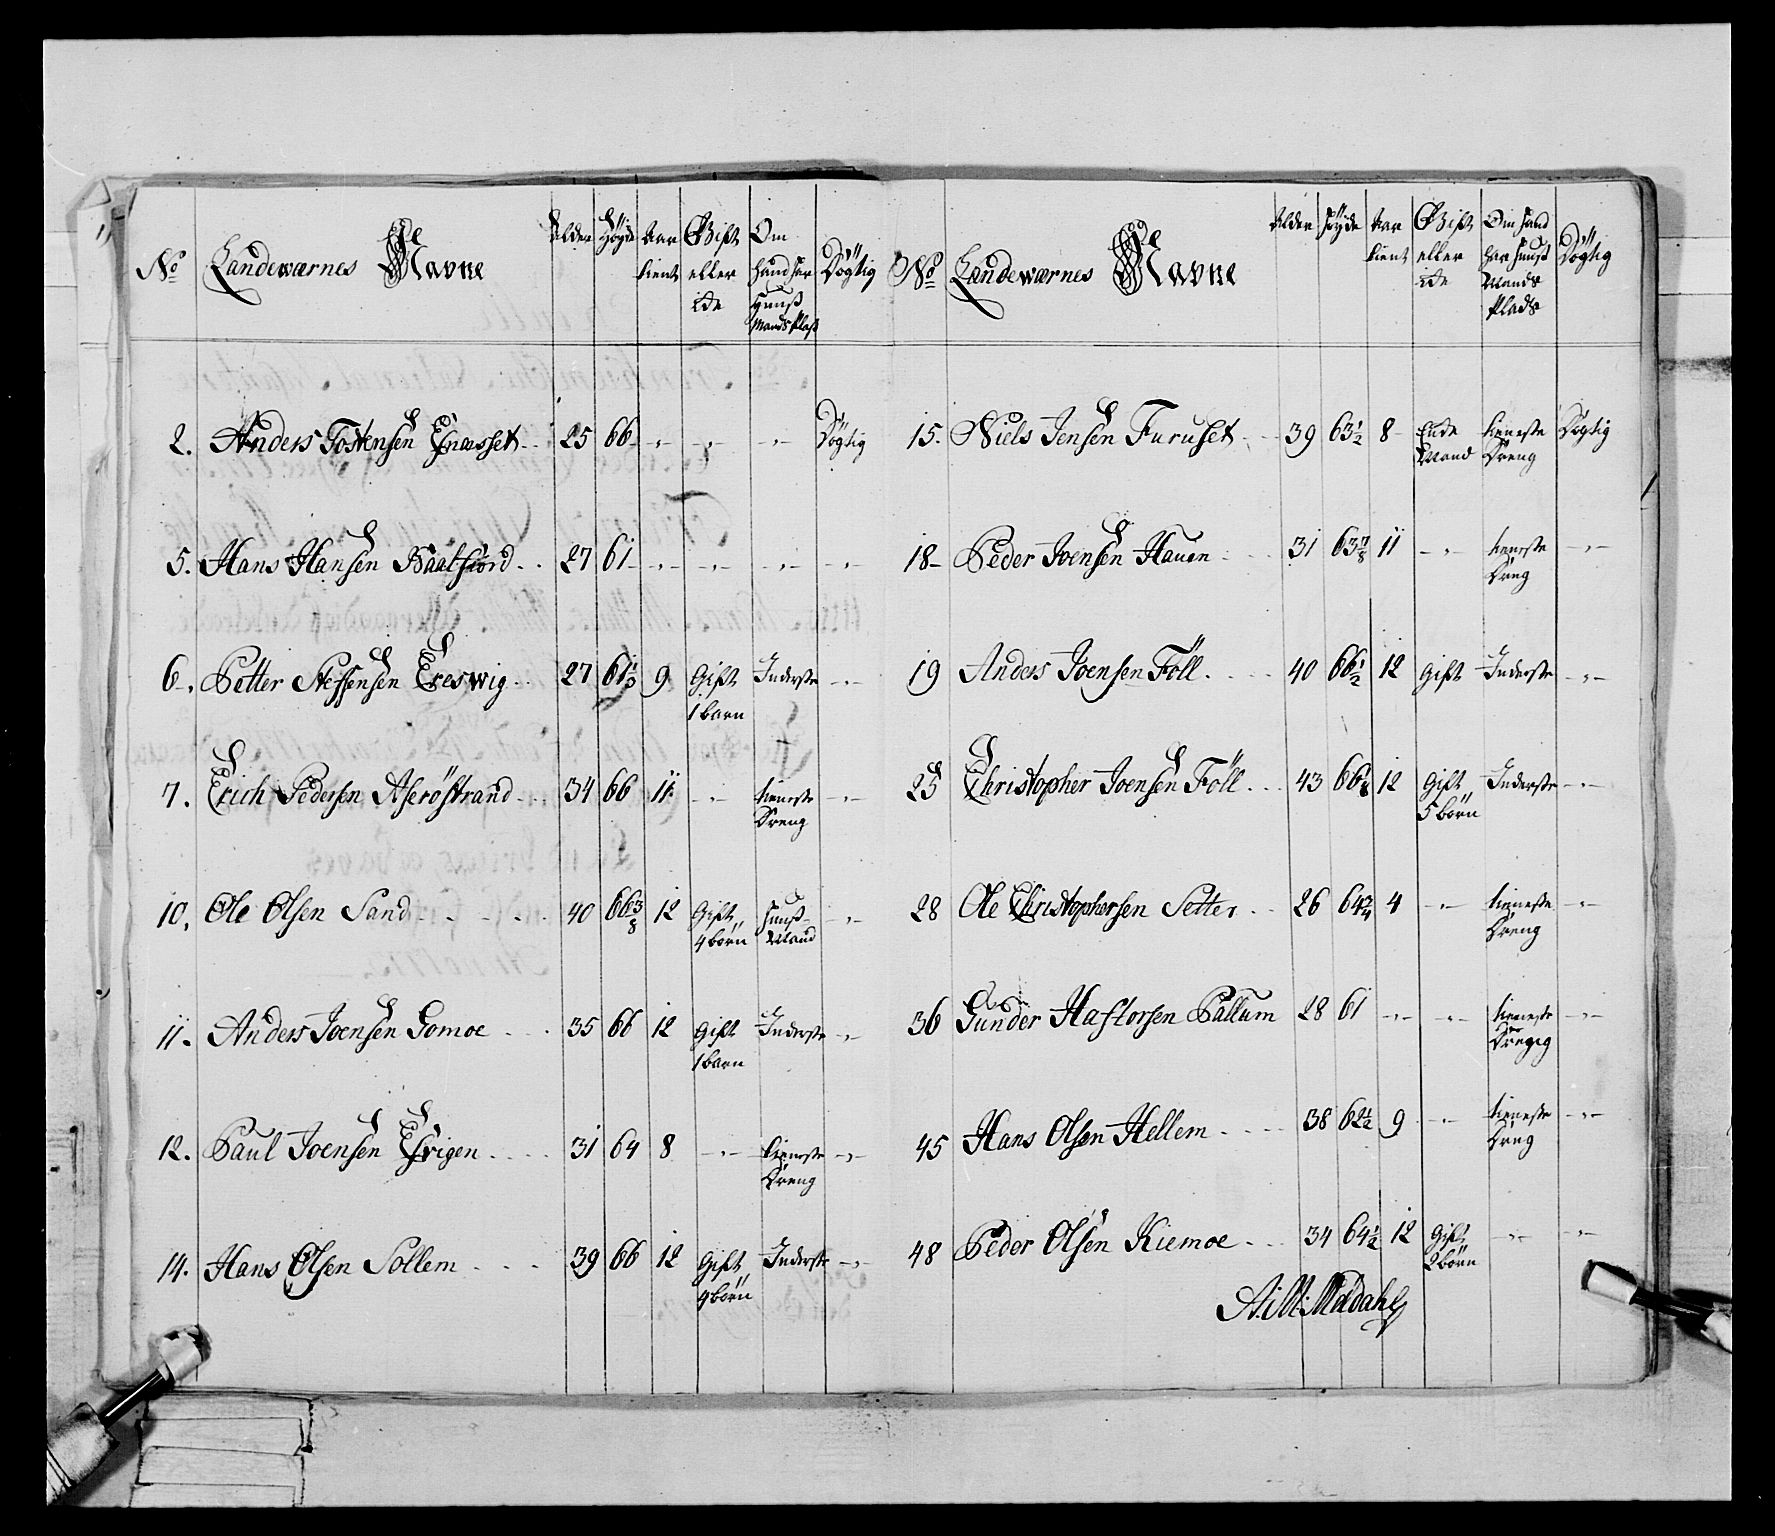 No Landewærnes Navne Alder Høyde Aar tient Gift eller ide Om hand har Huuß Mands Plaß Døgtig
2. Anders Tostensen Esnæsset 25 66 " " " Døgtig
5. Hans Hansen Baatsiord 27 61 " " " "
6. Petter Steffensen Ereswig 27 61 1/2 9 Gift 1 barn Inderste "
7. Erich Pedersen Aserøstrand 34 66 11 " tieneste Dreng "
10. Ole Olsen Sand 40 66 3/8 12 Gift 4 børn Huuß Mand "
11. Anders Joensen Gomoe 35 66 12 Gift 1 barn Inderste "
12. Paul Joensen 31 64 8 " tieneste Dreng "
14. Hans Olsen Sollem 39 66 12 Gift 4 børn Inderste "
No Landewærnes Navne Alder Høyde Aar tient Gift eller ide Om hand har Huuß Mands Plads Døgtig
15. Niels Jensen Furuset 39 63 1/2 8 Enke Mand tieneste Dreng Døgtig
18 Peder Joensen Hauen 31 63 7/8 11 " tieneste Dreng "
19 Anders Joensen Föll 40 66 1/2 12 Gift Inderste "
25 Christopher Joensen Föll 43 66 12 Gift 5 børn Inderste "
28 Ole Christophersen Setter 26 64 3/4 4 " tieneste Dreng "
36 Gunder Hastorsen Pallum 28 61 " " tieneste Dreng "
45 Hans Olsen Hellem 38 62 1/2 9 " tieneste Dreng "
48 Peder Olsen Kiemoe 34 64 1/2 12 Gift 2 børn " "